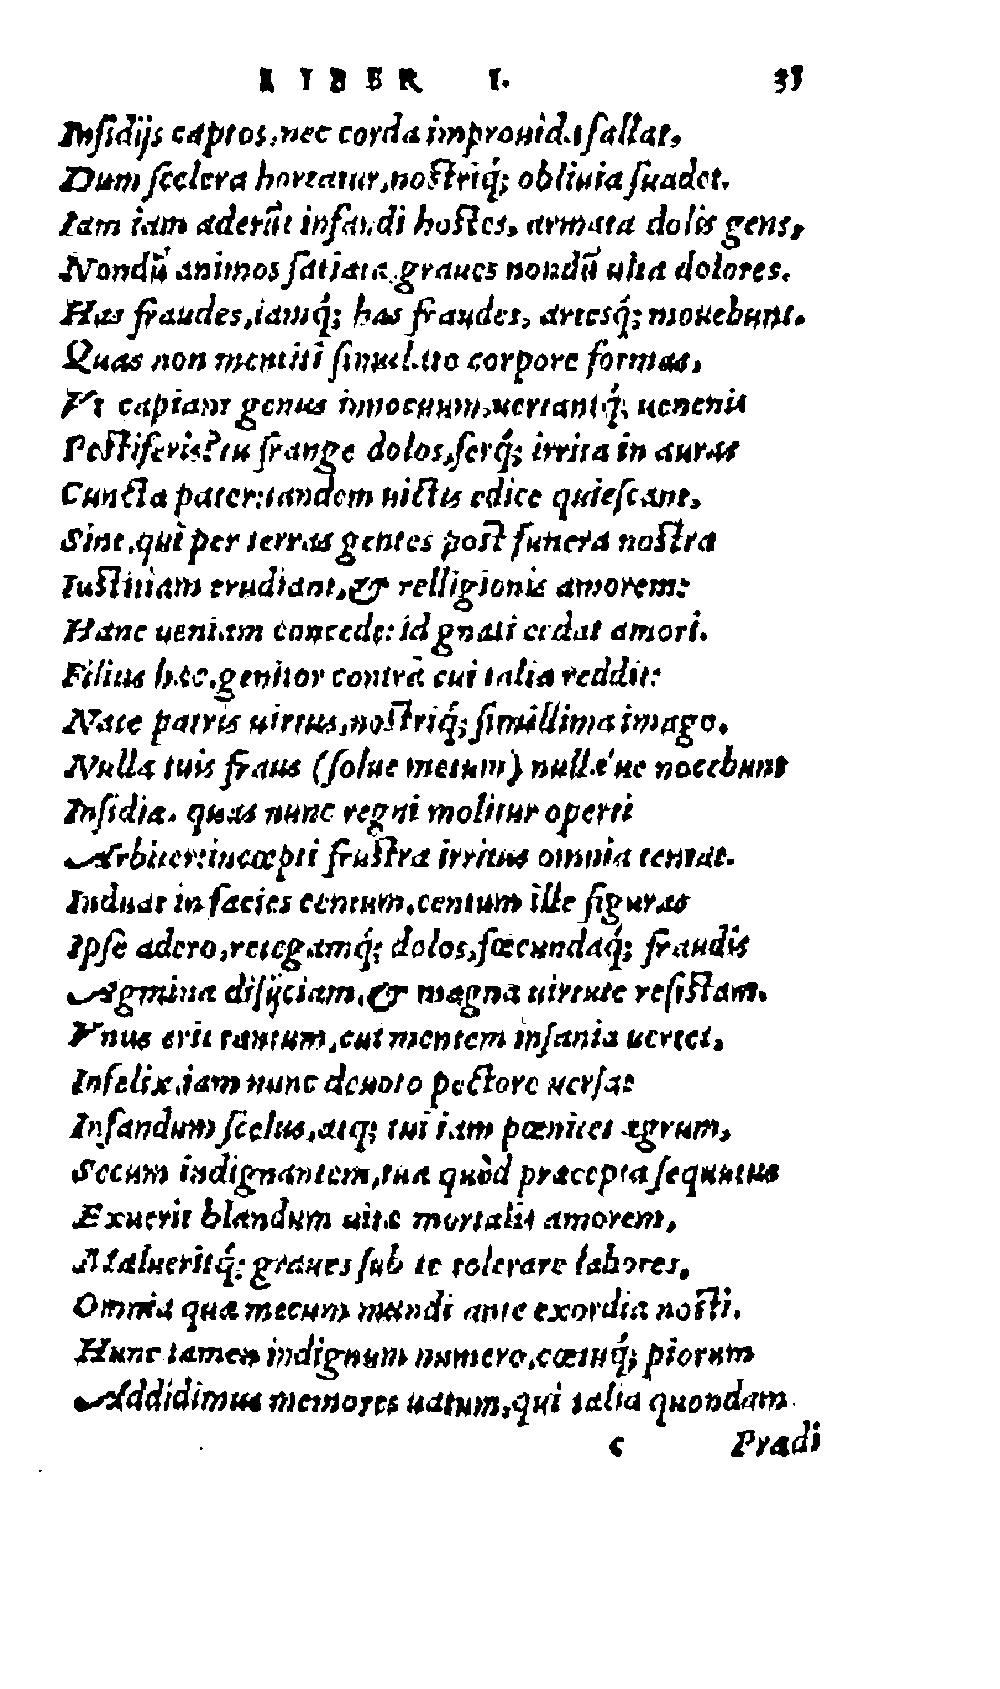 LIBER I. 33
Insidijs captos, nec corda improuida fallat,
Dum scelera hortatur, nostriq́; obliuia suadet.
Iam iam aderũt infandi hostes, armata dolis gens,
Nondũ animos satiata, graues nondũ ulta dolores.
Has fraudes, iamq́; has fraudes, artesq́; mouebunt.
Quas non mentiti simulato corpore formas,
Vt capiant genus innocuum, uertantq́; uenenis
Pestiferis? tu frange dolos, ferq́; irrita in auras
Cuncta pater: tandem uictus edice quiescant,
Sint, qui per terras gentes post funera nostra
Iustitiam erudiant, & relligionis amorem:
Hanc ueniam concede: id gnati cedat amori.
Filius hæc. genitor contrà cui talia reddit:
Nate patris uirtus, nostriq́; simillima imago.
Nulla tuis fraus (solue metum) nullæ'ue nocebunt
Insidiæ. quas nunc regni molitur operti
Arbiter: incœpti frustra irritus omnia tentat.
Induat in facies centum, centum ille figuras
Ipse adero, retegamq́; dolos, fœcundaq́; fraudis
Agmina disijciam, & magna uirtute resistam.
Vnus erit tantum, cui mentem insania uertet,
Infelix, iam nunc deuoto pectore uersat
Infandum scelus, atq; tui iam pœnitet ægrum,
Secum indignantem, tua quòd præcepta sequutus
Exuerit blandum uitæ mortalis amorem,
Malueritq́; graues sub te tolerare labores,
Omnia quæ mecum mundi ante exordia nosti.
Hunc tamen indignum numero, cœtuq́; piorum
Addidimus memores uatum, qui talia quondam
c Prædi